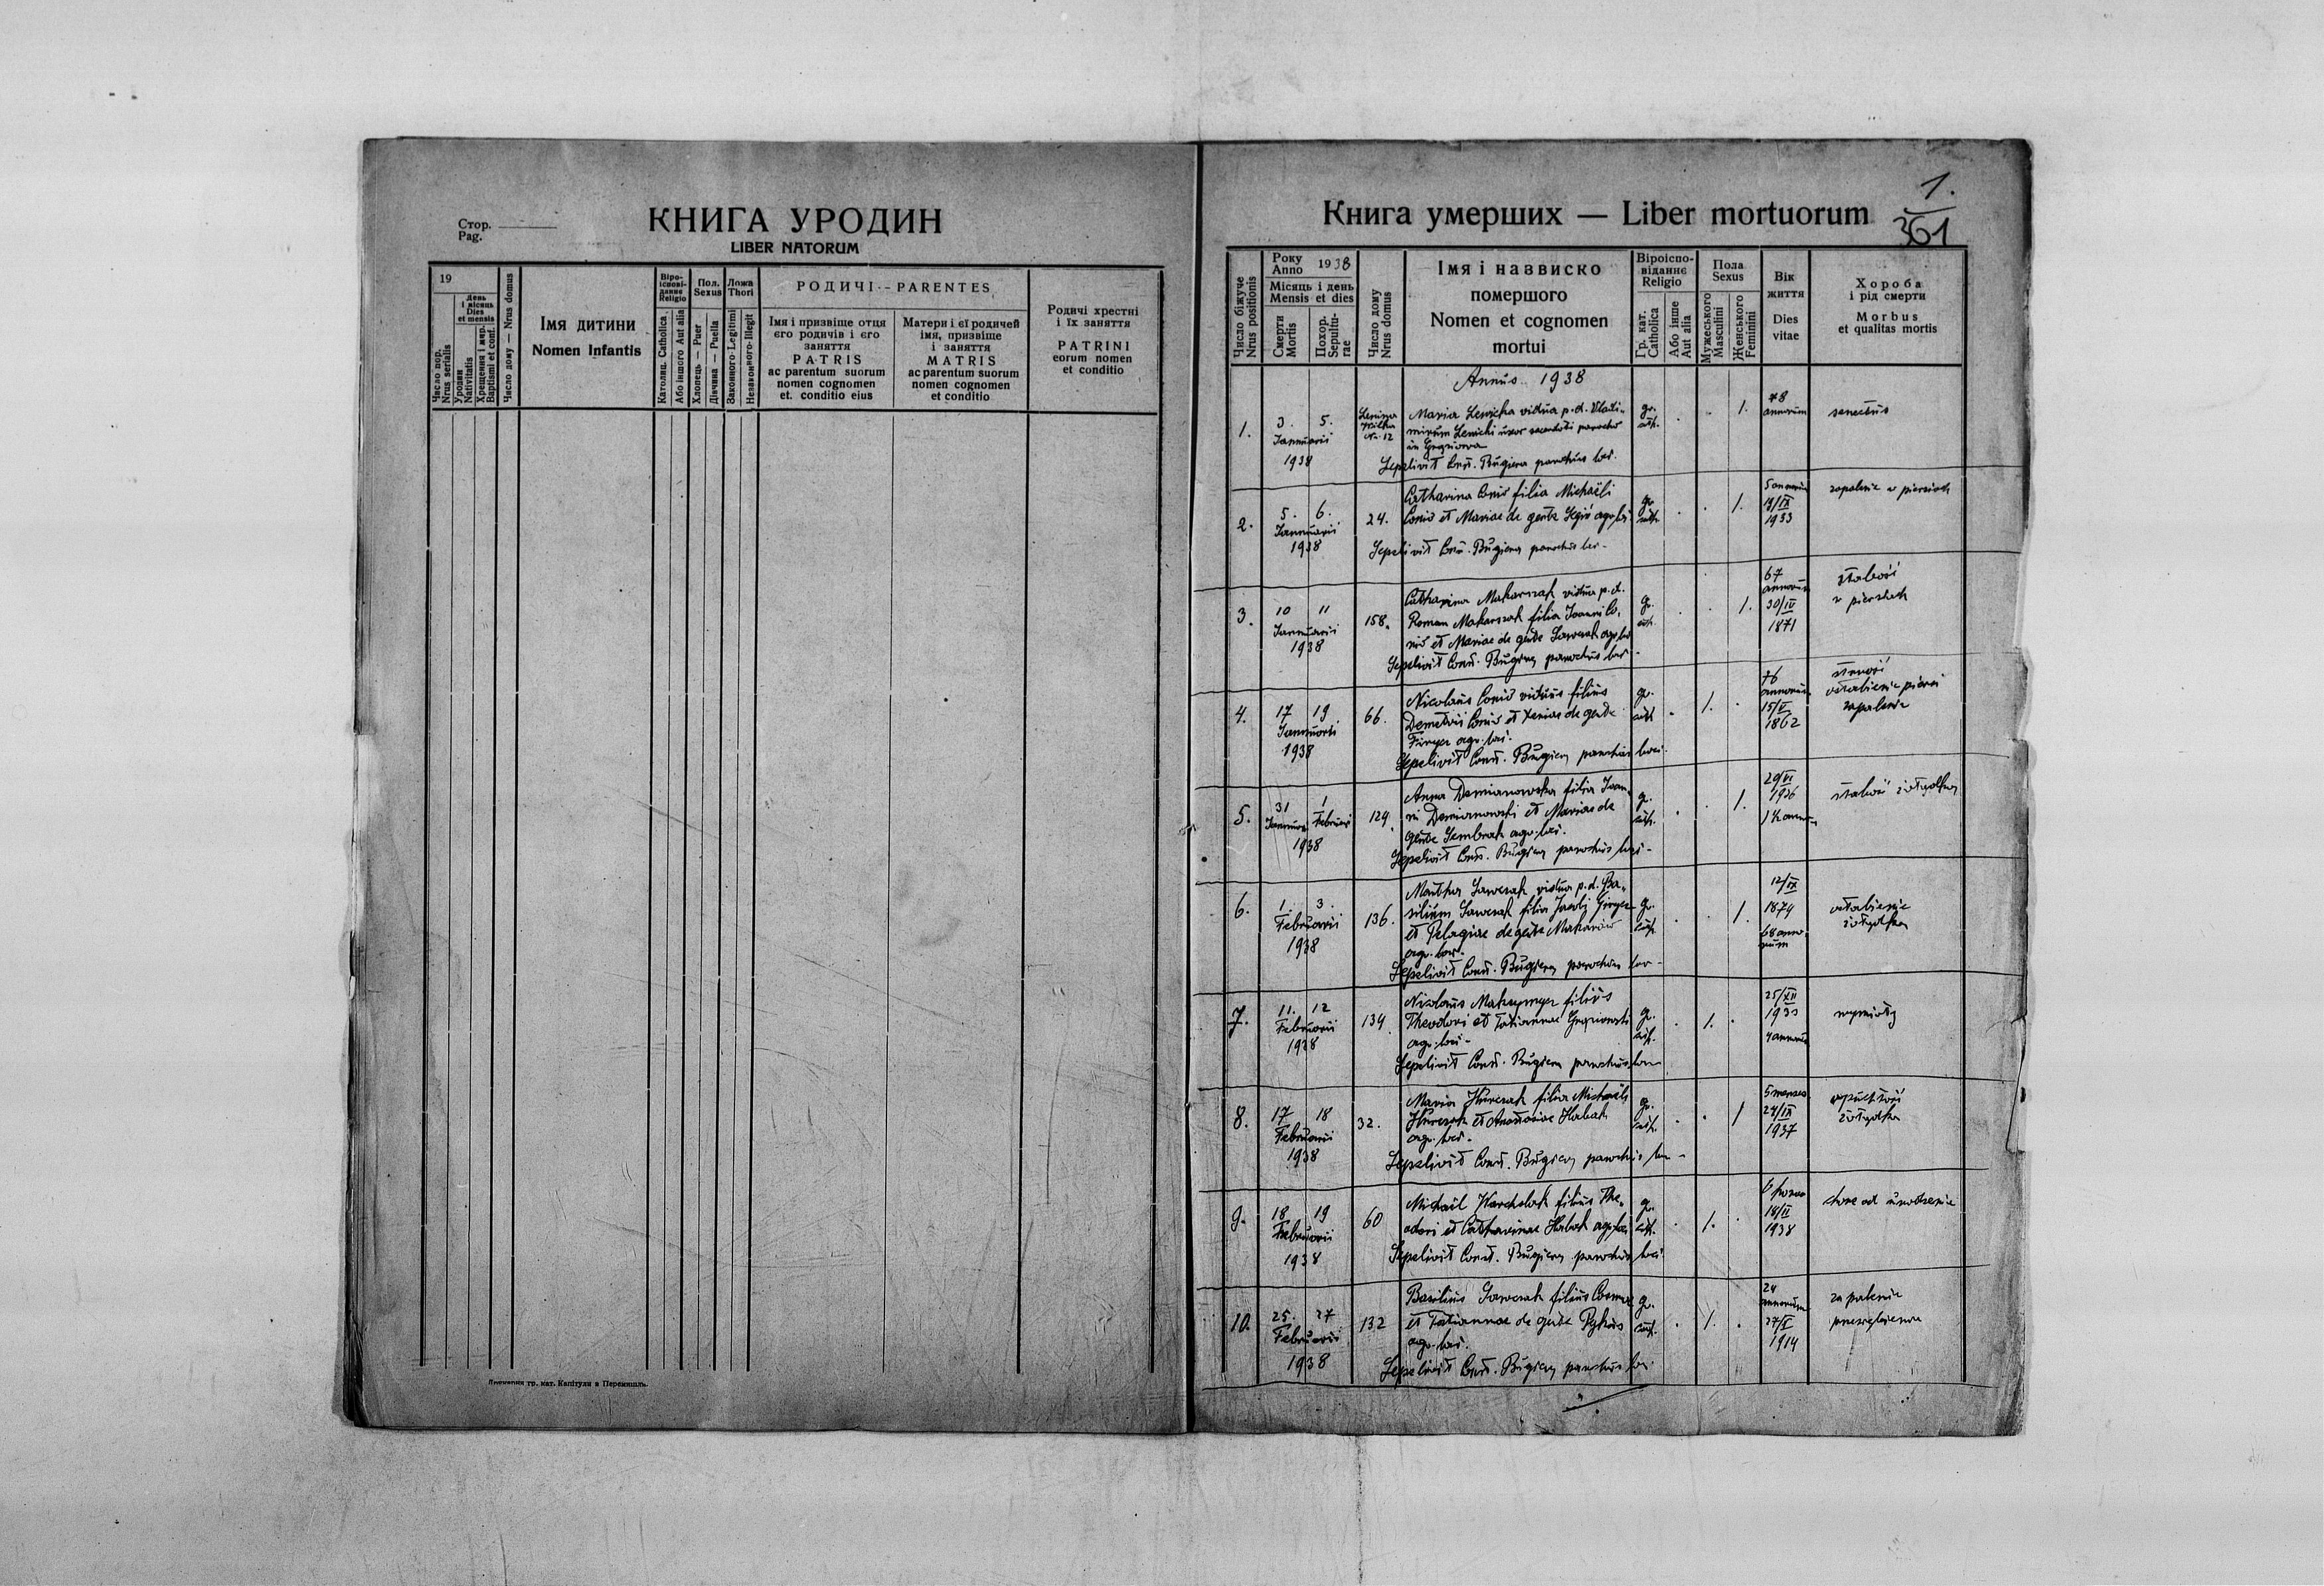 Стор.
Pag.
КНИГА УРОДИН
LIBER NATORUM
19
День
і місяць
Dies
et mensis
Число пор.
Nrus serialis
Уродин
Nativitatis
Хрещення і мир.
Baptismi et conf.
Число дому — Nrus domus
Імя дитини
Nomen Infantis
Віро-
ісповi-
данне
Religio
Католиц. Catholica
Або іншого Aut alia
Пол.
Sexus
Хлопець — Puer
Дівчина — Puella
Ложа
Thori
Законного-Legitimi
Незаконного-Illegit
РОДИЧІ - PARENTES
Імя і призвіще отця
єго родичів і єго
заняття
PATRIS
ac parentum suorum
nomen cognomen
et. conditio eius
Матери і єї родичей
імя, призвіще
і заняття
MATRIS
ac parentum suorum
nomen cognomen
et conditio
Родичі хрестні
і їх заняття
PATRINI
eorum nomen
et conditio
Друкарня гр. кат. Капітули в Перемишлі.
1.
361
Книга умерших — Liber mortuorum
Число біжуче
Nrus positionis
Року
Anno 1938
Місяць і день
Mensis et dies
Смерти
Mortis
Похор.
Sepultu-
rae
Число дому
Nrus domus
Імя і назвиско
помершого
Nomen et cognomen
mortui
Віроіспо-
віданнє
Religio
Гр. кат.
Catholica
Або інше
Aut alia
Пола
Sexus
Мужеського
Masculini
Женського
Feminini
Вік
життя
Dies
vitae
Хороба
і рід смерти
Morbus
et qualitas mortis
Annus 1938
1. 3. 5. Januarii 1938
Maria Lewicka vidua p.d. Vladi-
mirum Lewicki uxor
in
gr. cath. 1. 78 annorum
senectus
Sepelivit Const. Bugiera parochus loci.
2. 5. 6. Januarii 1938 24.
Catharina filia Michaëli
et Mariae de gente agr. loci
gr. cath. 1. 5 annorum /IX 1933
zapalenie w piersiach
Sepelivit Const. Bugiera parochus loci
3. 10 11 Januarii 1938 158.
Catharina Makarszak vidua p.d.
Roman Makarszak filia Joanni
et Mariae de gente Sawczak agr. loci
gr. cath. 1. 67 annorum 30/IV 1871
słabość
w piersiach
Sepelivit Const. Bugiera parochus loci
4. 17 19 Januarii 1938 66.
Nicolaus viduus filius
Demetrii et Xeniae de gente
agr. loci.
gr. cath. 1. 76 annorum 15/V 1862
starość
osłabienie piersi
zapalenie
Sepelivit Const. Bugiera parochus loci.
5. 31 Januarii 1 Februarii 1938 124.
Anna Demianowska filia Joan-
ni Demianowski et Mariae de
gente Sembrak agr. loci.
gr. cath. 1. 29/VI 1936 1½ annorum
słabość żołądka
Sepelivit Const. Bugiera parochus loci
6. 1. 3. Februarii 1938 136.
Martha Sawczak vidua p.d. Ba-
silium Sawczak filia Jacobi
et Pelagiae de gente Makarów
agr. loci.
gr. cath. 1. 12/IX 1874 68 anno-
rum
osłabienie
żołądka
Sepelivit Const. Bugiera parochus loci
7. 11. 12 Februarii 1938 134.
Nicolaus Maksymyer filius
Theodori et Tatiannae
agr. loci
gr. cath. 1. 25/XII 1933 4 annorum
wymioty
Sepelivit Const. Bugiera parochus loci
8. 17 18 Februarii 1938 32.
Maria filia Michaëli
et Anastasiae Habak
agr. loci.
gr. cath. 1 5 menses 24/IX 1937
żołądka
Sepelivit Const. Bugiera parochus loci
9. 18 19 Februarii 1938 60
Michaël filius The-
odori et Catharinae Habak agr. loci
gr. cath. 1. 6 horae 18/II 1938
chore od urodzenia
Sepelivit Const. Bugiera parochus loci
10. 25. 27 Februarii 1938 132
Basilius Sawczak filius Cosmae
et Tatiannae de gente
agr. loci.
gr. cath. 1. 24 annorum 27/I 1914
zapalenie
przeziębienie
Sepelivit Const. Bugiera parochus loci